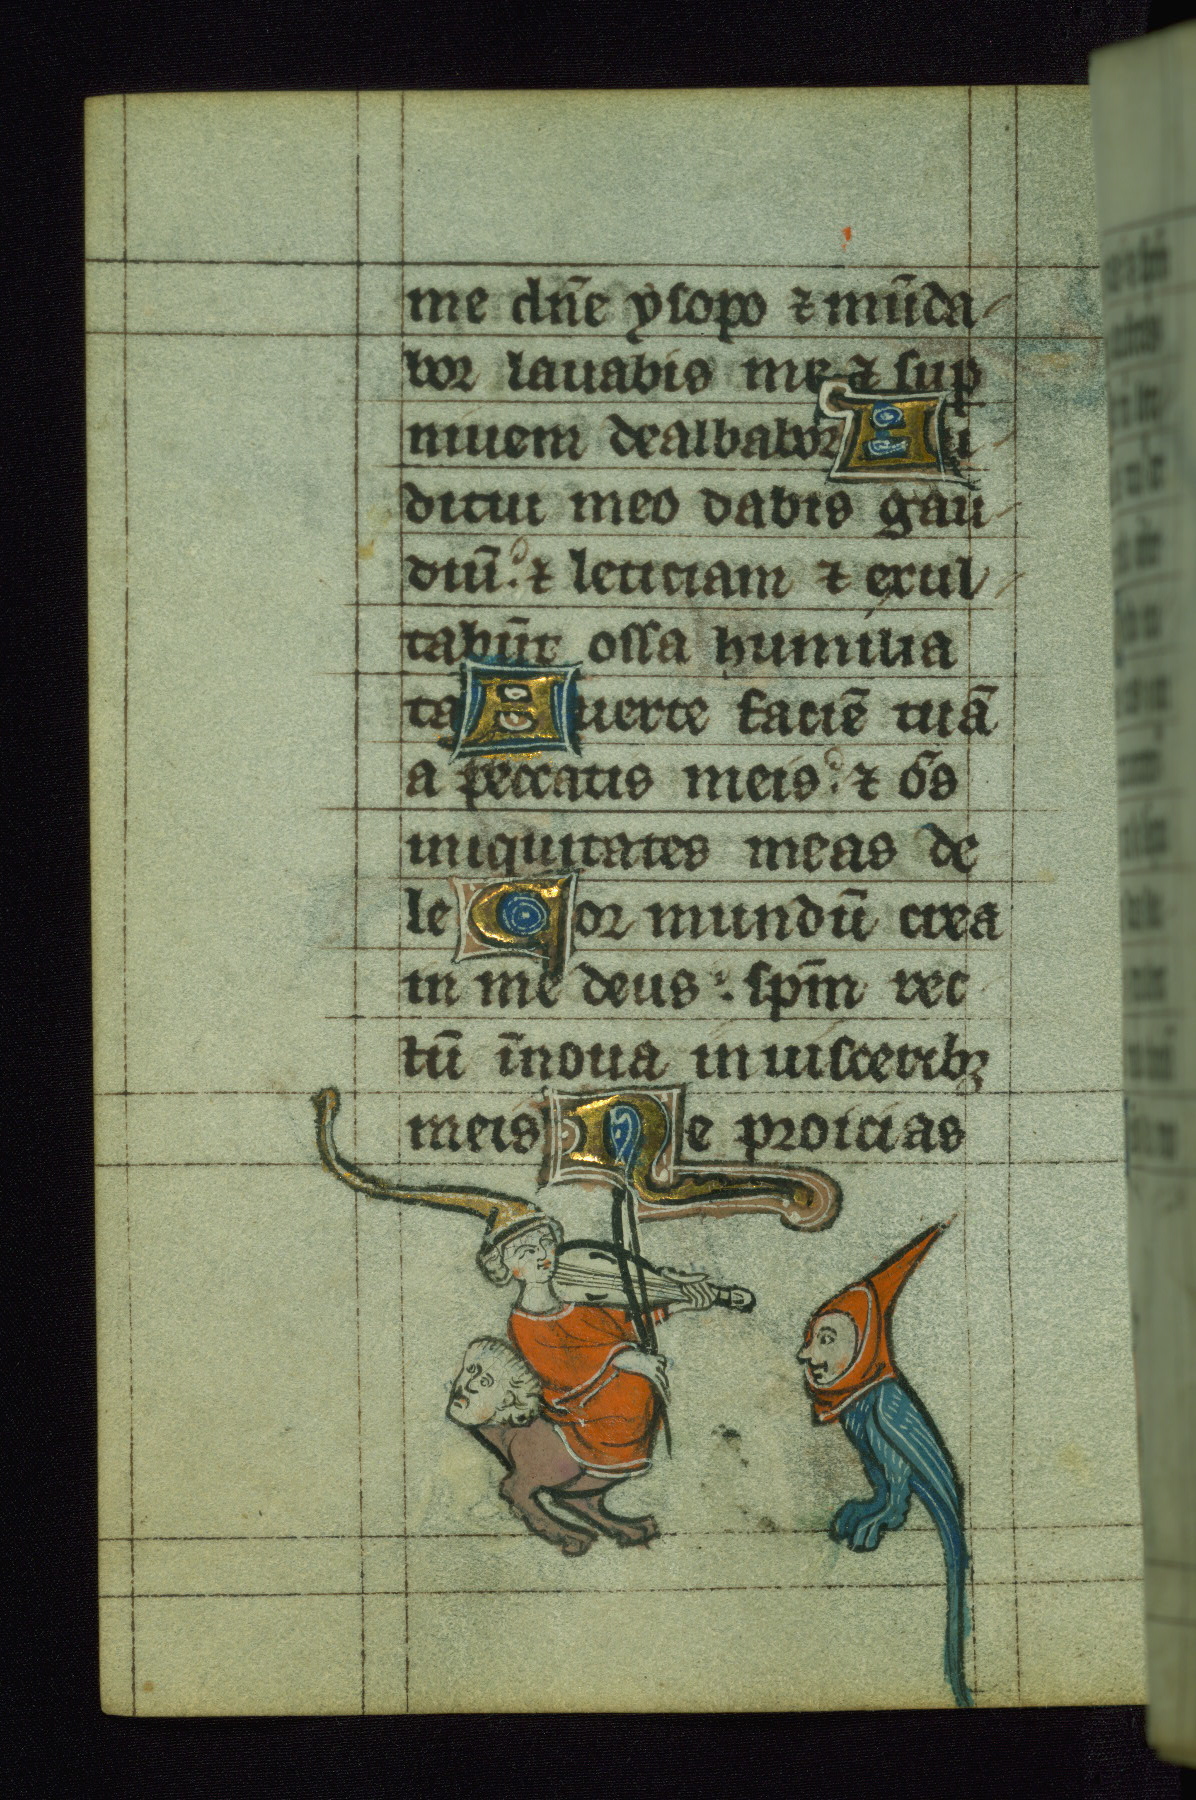 me dn̄e ysopo ⁊ mūda
bor lauabis me ⁊ sup
niuem dealbabor Au
ditui meo dabis gau
diū. ⁊ leticiam ⁊ exul
tabūt ossa humilia
ta Auerte faciē tuā
a peccatis meis. ⁊ om̄s
iniquitates meas de
le Cor mundū crea
in me deus : spm̄ rec
tū īnoua in uisceribꝫ
meis Ne proicias